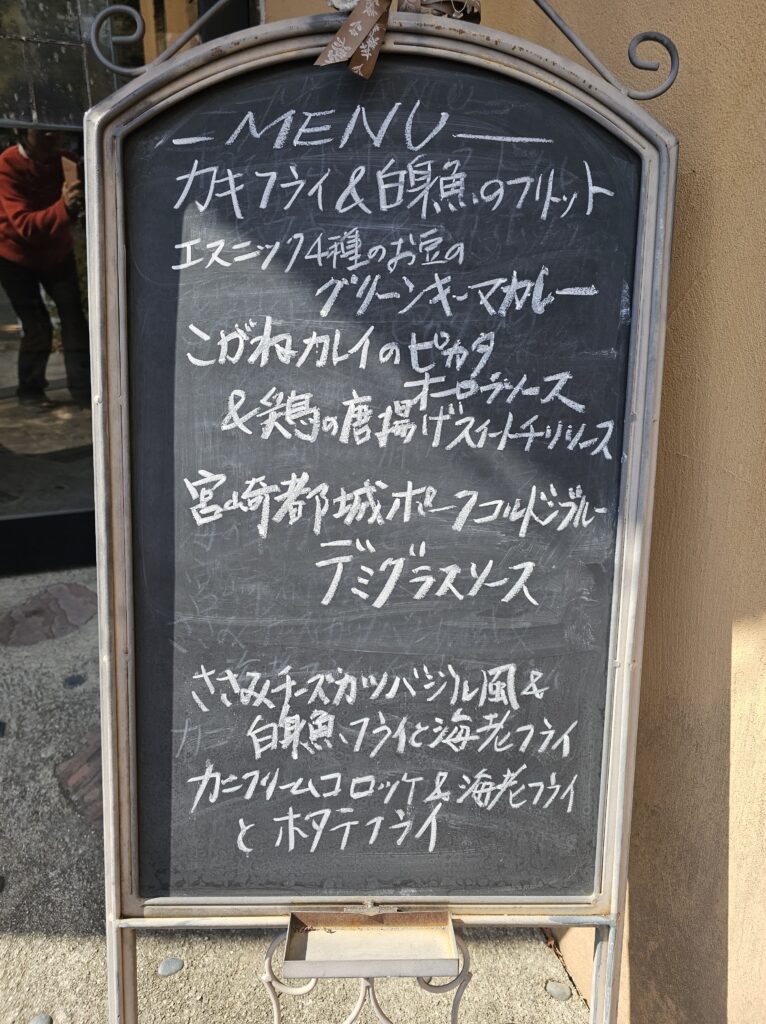 MENU
カキフライ&白身魚のフリット
エスニック4種のお豆の
グリーンキーマカレー
こがねカレイのピカタ
オーロラソース
&鶏の唐揚げスイートチリソース
宮崎都城ポークコルドンブルー
デミグラスソース
ささみチーズカツバジル風&
白身魚フライと海老フライ
カニクリームコロッケ&海老フライ
とホタテフライ